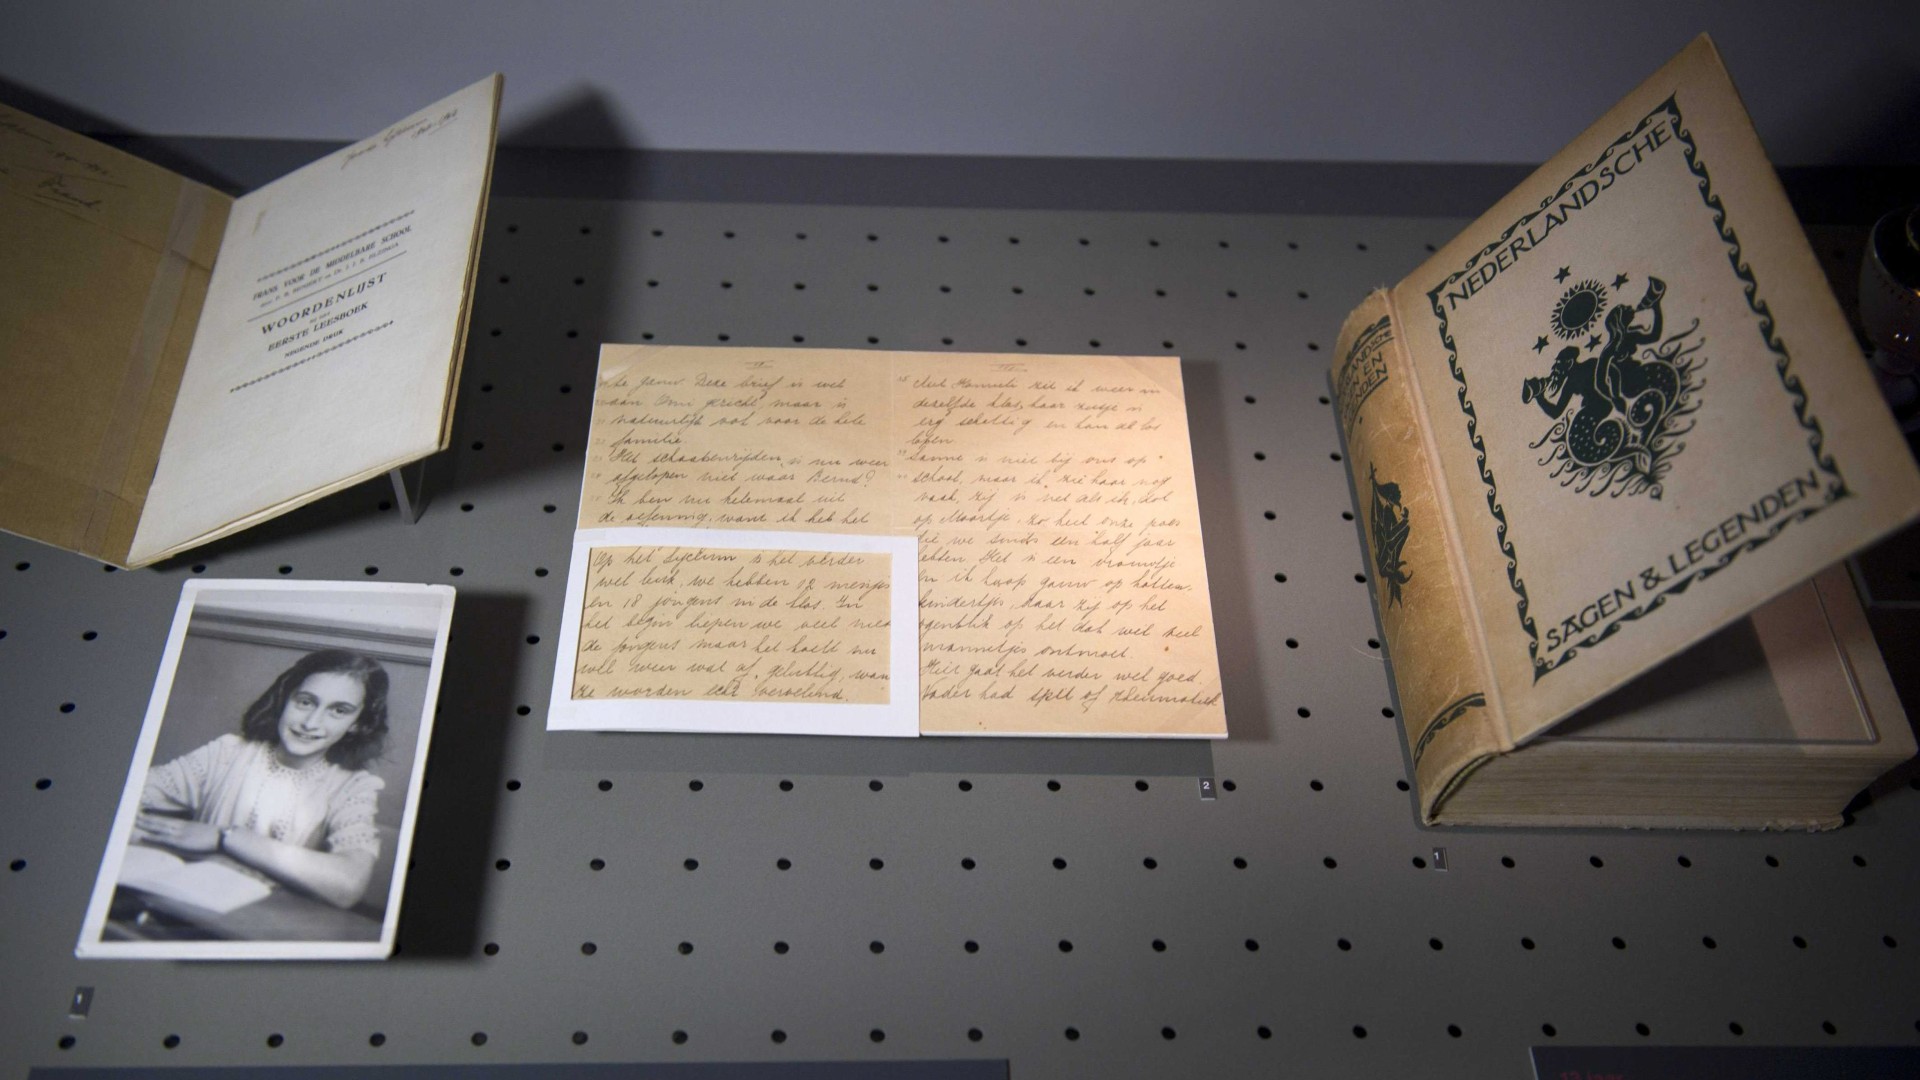 FRANS VOOR DE MIDDELBARE SCHOOL
WOORDENLIJST
EERSTE LEESBOEK
NEGENDE DRUK
gauw. Deze brief is wel
aan Omi gericht, maar is
natuurlijk ook voor de hele
familie.
Het schaatsenrijden is nu weer
afgelopen niet waar Bernd?
Ik ben nu helemaal uit
de oefening, want ik heb het
Op het Lyceum is het verder
wel leuk, we hebben 12 meisjes
en 18 jongens in de klas. In
het begin liepen we veel met
de jongens maar het koelt nu
wel weer wat af, gelukkig, want
ze worden echt vervelend.
Met Hanneli zit ik weer in
dezelfde klas, haar zusje is
erg schattig en kan al los
lopen.
Sanne is niet bij ons op
school, maar ik zie haar nog
vaak, zij is net als ik, dol
op Moortje. Zo heet onze poes
die we sinds een half jaar
hebben. Het is een vrouwtje
en ik hoop gauw op katten-
kindertjes, daar zij op het
ogenblik op het dak veel
mannetjes ontmoet.
Hier gaat het verder wel goed.
Vader had spit of rheumatiek
2
NEDERLANDSCHE
SAGEN & LEGENDEN
1
1
12 jaar